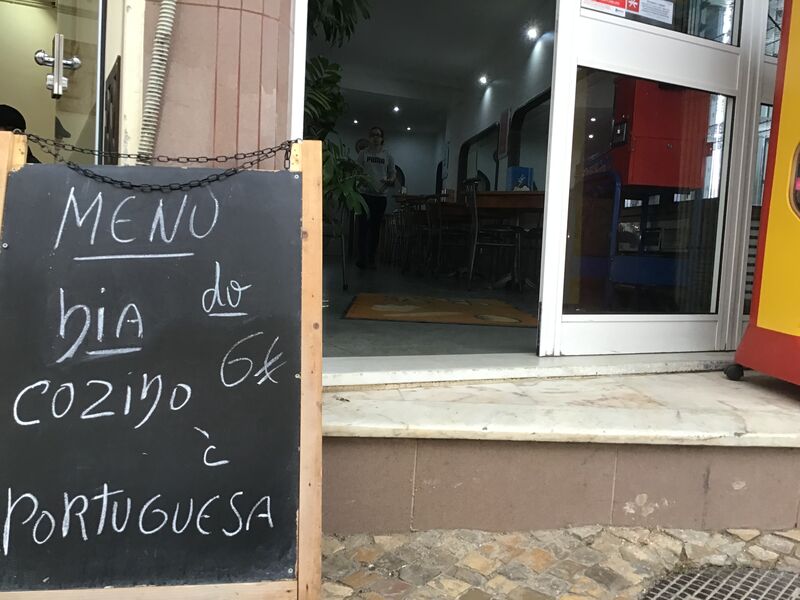 MENU
do
DiA
6€
COZIDO
à
PORTUGUESA
PUMA